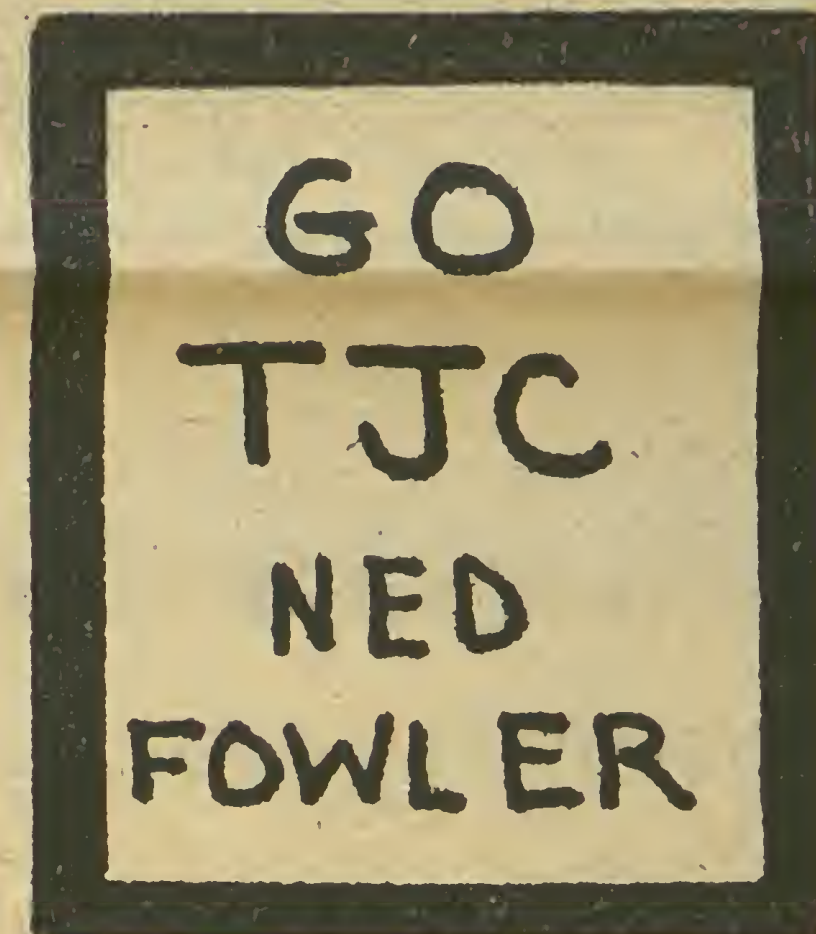 GO
TJC
NED
FOWLER